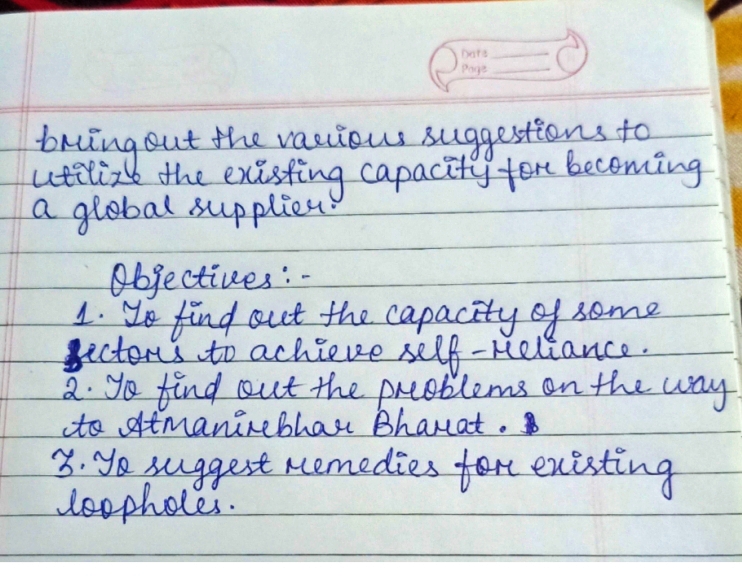 Date
Page
bring out the various suggestions to
utilize the existing capacity for becoming
a global supplier.
Objectives :-
1. To find out the capacity of some
sectors to achieve self-reliance.
2. To find out the problems on the way
to Atmanirbhar Bharat.
3. To suggest remedies for existing
loopholes.